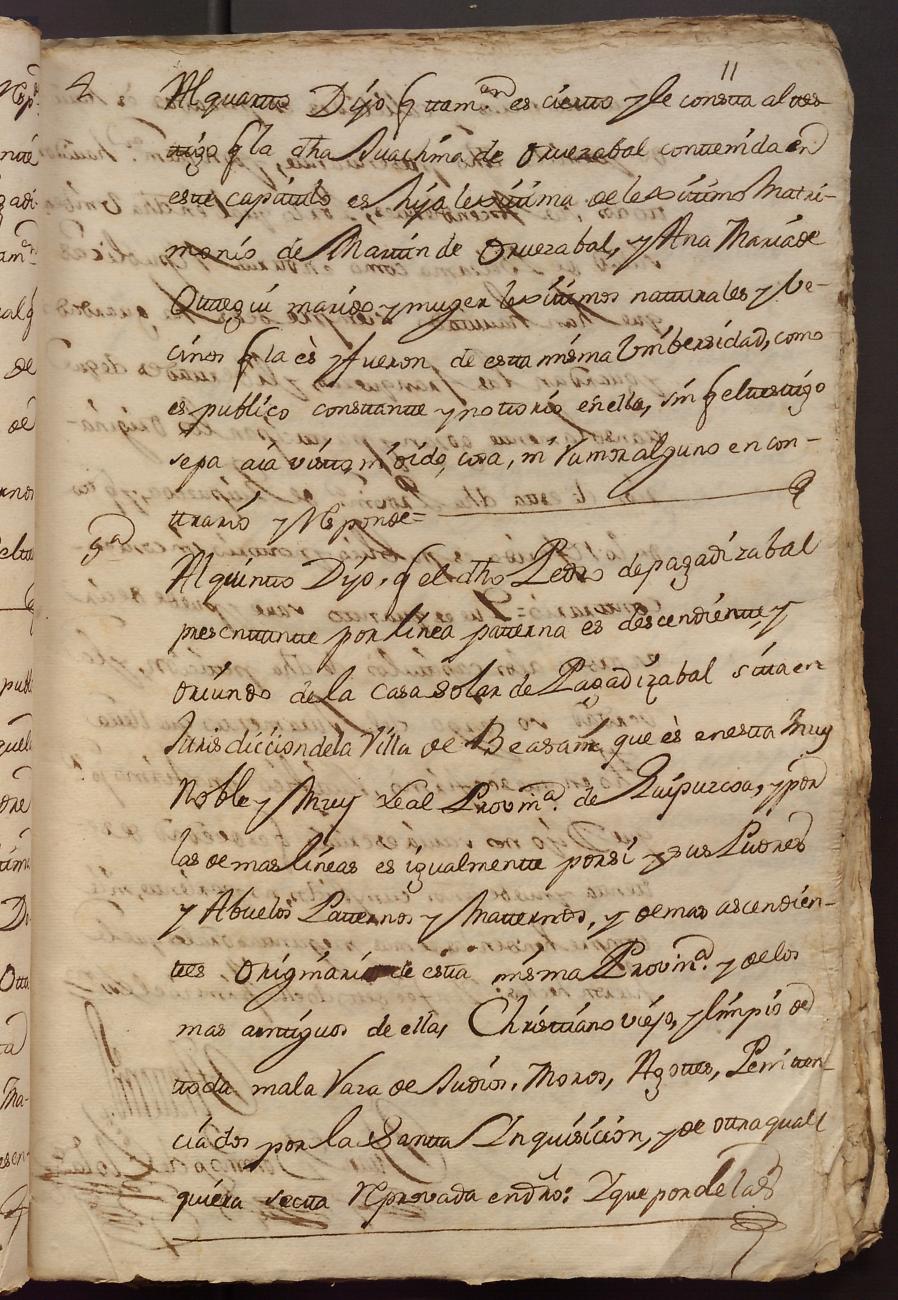 11
4 Al quartto Dijo q ttam.en es ciertto y le constta al tes-
ttigo q la dha Juachina de Oruezabal conttenida en
estte capittulo es hija lexittima de lexittimo Matri-
monio de Marttin de Oruezabal, y Ana Maria de
Ottegui marido y muger lexittimos natturales y Ve-
cinos q la es y fueron de estta misma Vnibersidad, como
es publico consttante y nottorio en ella, sin q el testtigo
sepa aia vistto, ni oido, cosa, ni rumor alguno en con-
ttrario y Responde=
5.a Al quintto Dijo, q el dho Pedro de pagadizabal
presenttantte por linea patterna es descendientte, y
oriundo de la casa solar de Pagadizabal sitta en
Jurisdiccion de la Villa de Beasain, que ès en estta Muy
Noble y Muy Leal Provin.a de Guipuzcoa, y por
las demas lineas es igualmentte por si y sus Padres
y Abuelos Patternos y Matternos, y demas ascendien-
ttes originario de estta misma Provin.a y de los
mas anttiguos de ella, Christtiano viejo, y limpio de
ttoda mala Raza de Judios, Moros, Agottes, Penitten-
ciados por la Santta Inquisicion, y de ottra qual
quiera sectta reprovada en dro: Y que por de ttal